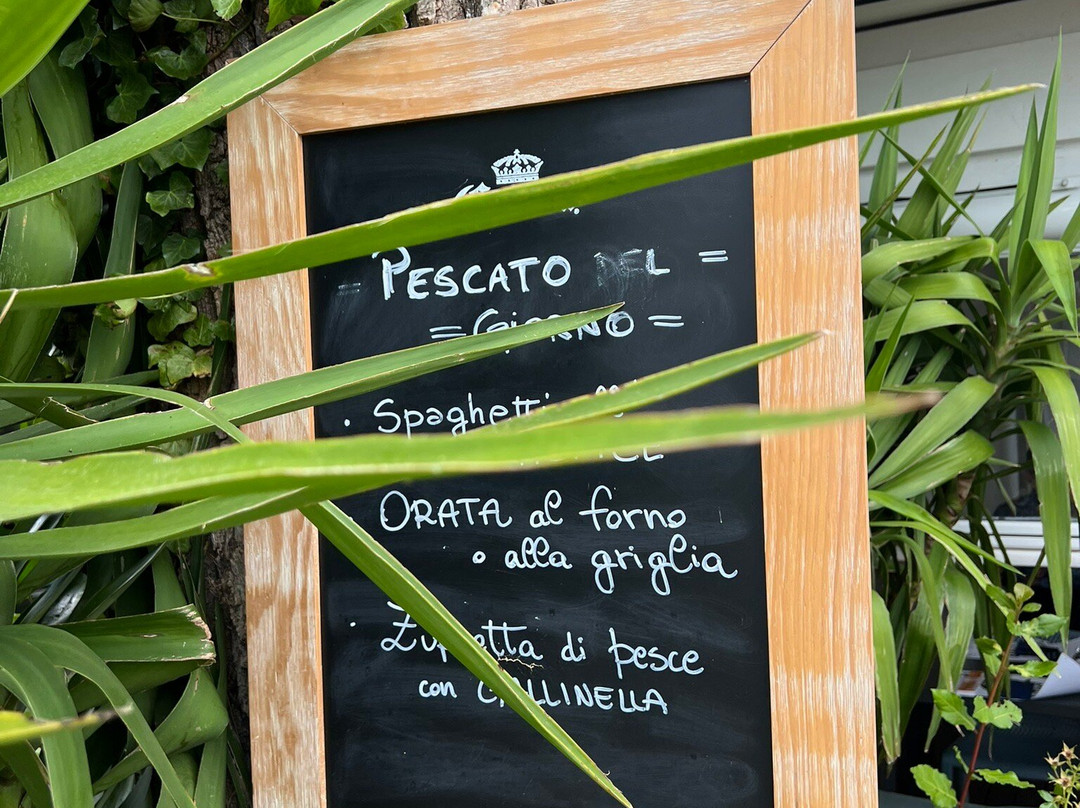 = PESCATO DEL =
= GIORNO =
• Spaghetti
ORATA al forno
o alla griglia
• Zuppetta di pesce
con GALLINELLA